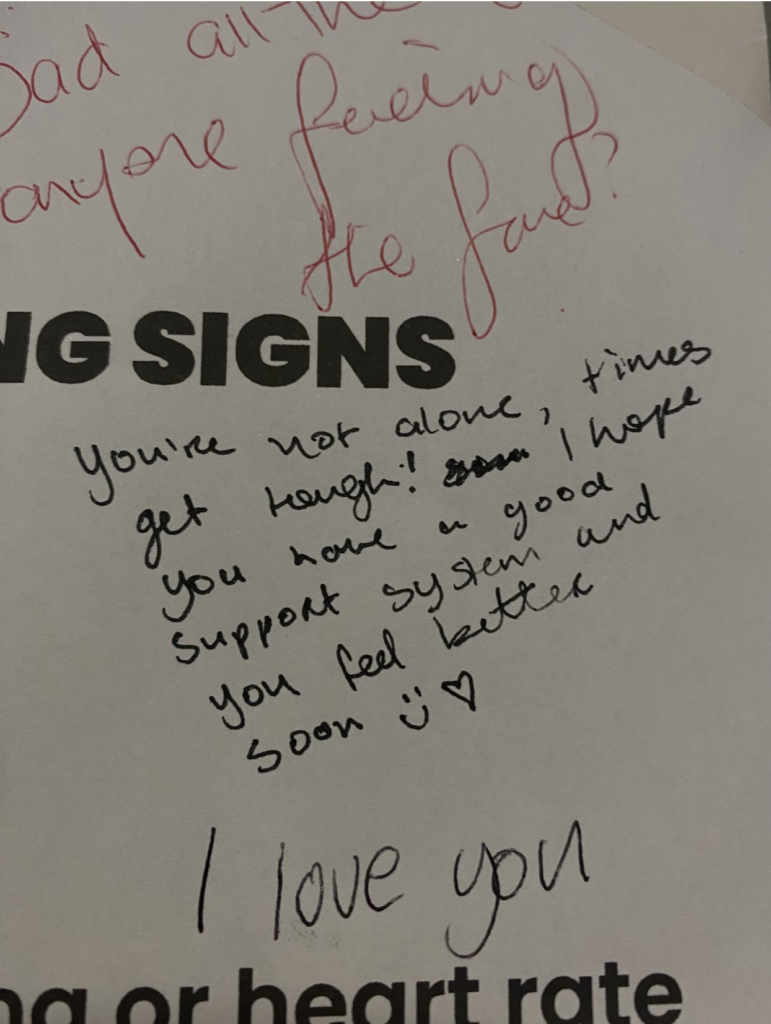 Sad all the
anyone feeling
the same?
NG SIGNS
You're not alone, times
get rough! I hope
you have a good
support system and
you feel better
soon :) ♡
I love you
ng or heart rate